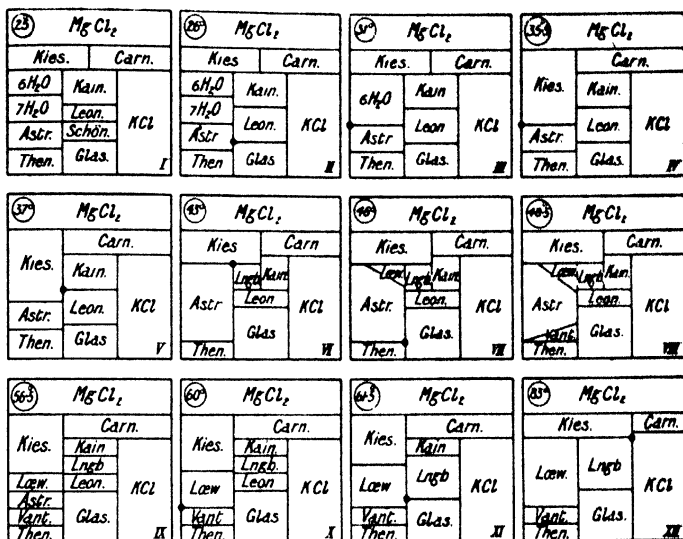 25° MgCl₂
Kies. Carn.
6H₂O Kain.
7H₂O Leon. KCl
Astr. Schön.
Then. Glas. I
MgCl₂
Kies Carn.
6H₂O Kain.
7H₂O Leon. KCl
Astr
Then Glas II
31° MgCl₂
Kies. Carn.
6H₂O Kain
Leon KCl
Astr
Then. Glas. III
MgCl₂
Carn.
Kies. Kain.
Leon. KCl
Astr.
Then. Glas. IV
37° MgCl₂
Carn.
Kies. Kain.
Leon. KCl
Astr.
Then. Glas V
MgCl₂
Kies Carn.
Lngb Kain
Astr Leon KCl
Glas
Then. VI
46° MgCl₂
Kies. Carn.
Lœw. Lngb Kain
Astr. Leon. KCl
Glas.
Then. VII
MgCl₂
Kies. Carn.
Lœw. Lngb Kain.
Astr Leon. KCl
Vant. Glas
Then. VIII
MgCl₂
Carn.
Kies. Kain
Lngb
Lœw. Leon. KCl
Astr.
Vant. Glas.
Then. IX
60° MgCl₂
Carn.
Kies. Kain.
Lngb.
Lœw Leon KCl
Vant Glas.
Then. X
MgCl₂
Carn.
Kies. Kain
Lœw Lngb KCl
Vant. Glas.
Then. XI
83° MgCl₂
Kies. Carn.
Lœw. Lngb KCl
Vant. Glas.
Then.